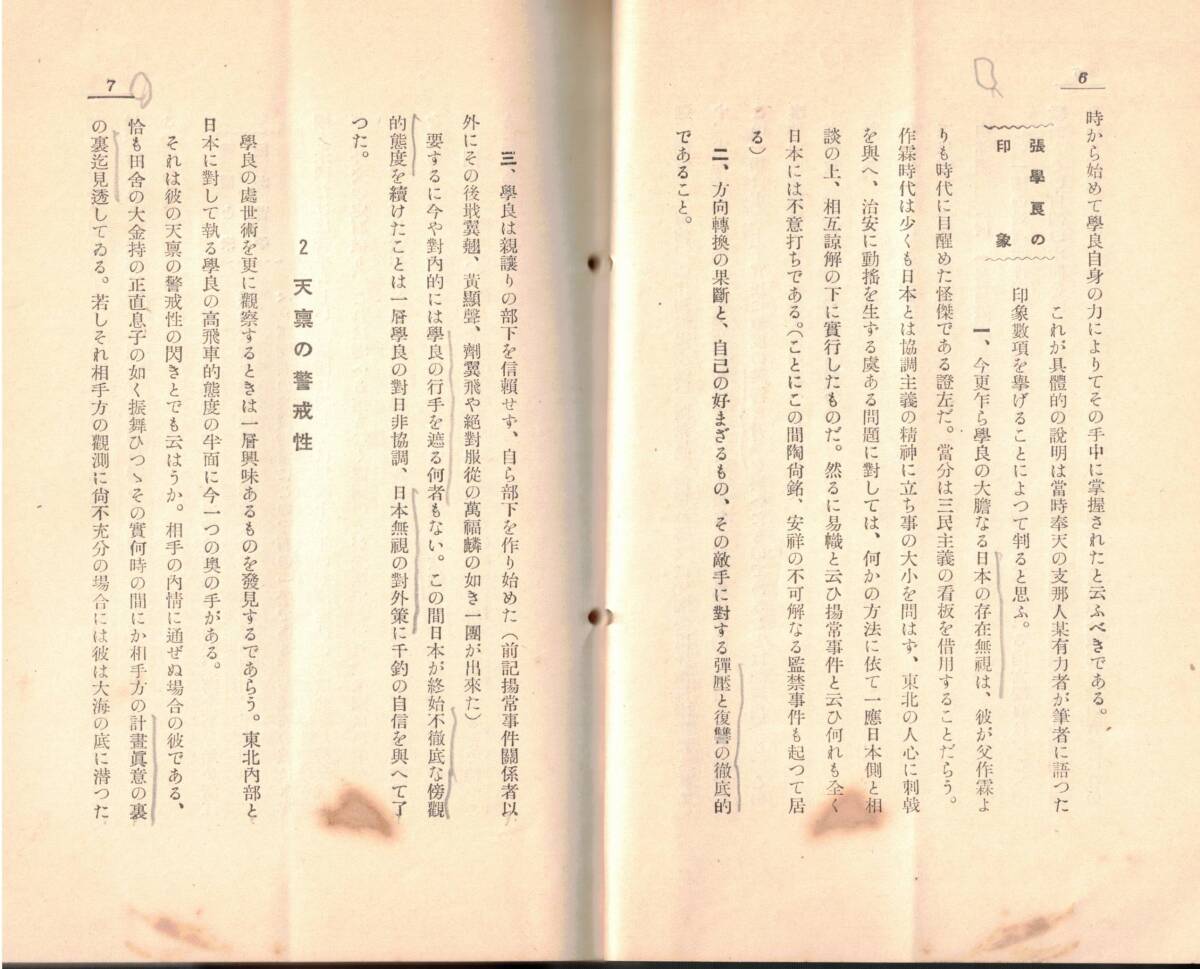 6
時から始めて學良自身の力によりてその手中に掌握されたと云ふべきである。
張學良の
印象
これが具體的の說明は當時奉天の支那人某有力者が筆者に語つた
印象數項を擧げることによつて判ると思ふ。
一、今更乍ら學良の大膽なる日本の存在無視は、彼が父作霖よ
りも時代に目醒めた怪傑である證左だ。當分は三民主義の看板を借用することだらう。
作霖時代は少くも日本とは協調主義の精神に立ち事の大小を問はず、東北の人心に刺戟
を與へ、治安に動搖を生ずる虞ある問題に對しては、何かの方法に依て一應日本側と相
談の上、相互諒解の下に實行したものだ。然るに易幟と云ひ揚常事件と云ひ何れも全く
日本には不意打ちである。(ことにこの間陶尙銘、安祥の不可解なる監禁事件も起つて居
る)
二、方向轉換の果斷と、自己の好まざるもの、その敵手に對する彈壓と復讐の徹底的
であること。
三、學良は親讓りの部下を信賴せず、自ら部下を作り始めた(前記揚常事件關係者以
外にその後戢翼翹、黃顯聲、劑翼飛や絕對服從の萬福麟の如き一團が出來た)
要するに今や對內的には學良の行手を遮る何者もない。この間日本が終始不徹底な傍觀
的態度を續けたことは一層學良の對日非協調、日本無視の對外策に千鈞の自信を與へて了
つた。
2 天稟の警戒性
學良の處世術を更に觀察するときは一層興味あるものを發見するであらう。東北內部と
日本に對して執る學良の高飛車的態度の半面に今一つの奧の手がある。
それは彼の天稟の警戒性の閃きとでも云はうか。相手の內情に通ぜぬ場合の彼である、
恰も田舍の大金持の正直息子の如く振舞ひつゝその實何時の間にか相手方の計畫眞意の裏
の裏迄見透してゐる。若しそれ相手方の觀測に尙不充分の場合には彼は大海の底に潛つた
7